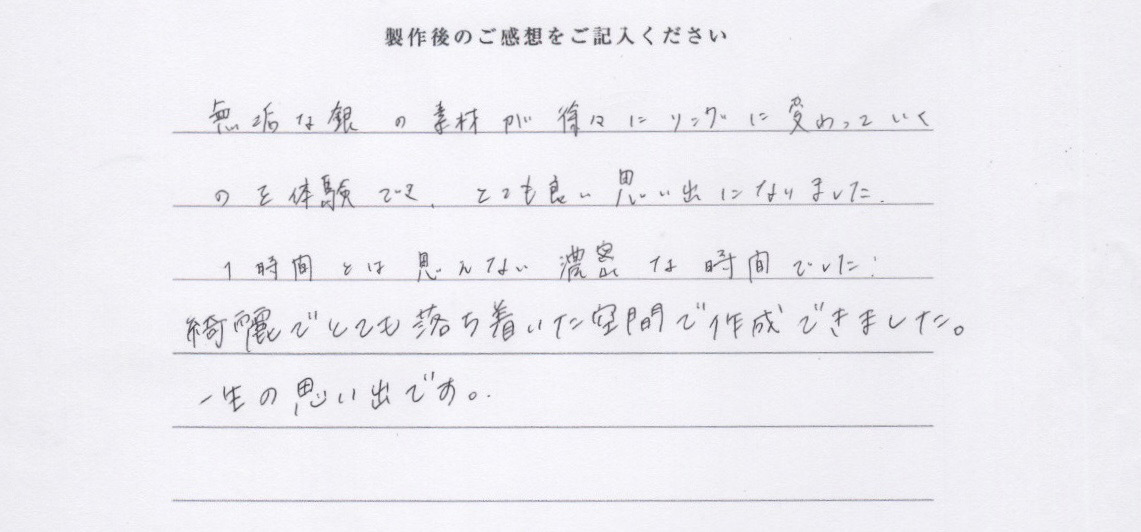 製作後のご感想をご記入ください
無垢な銀の素材が徐々にリングに変わっていく
のを体験でき、とても良い思い出になりました.
1時間とは思えない濃密な時間でした.
綺麗でとても落ち着いた空間で作成できました。
一生の思い出です。